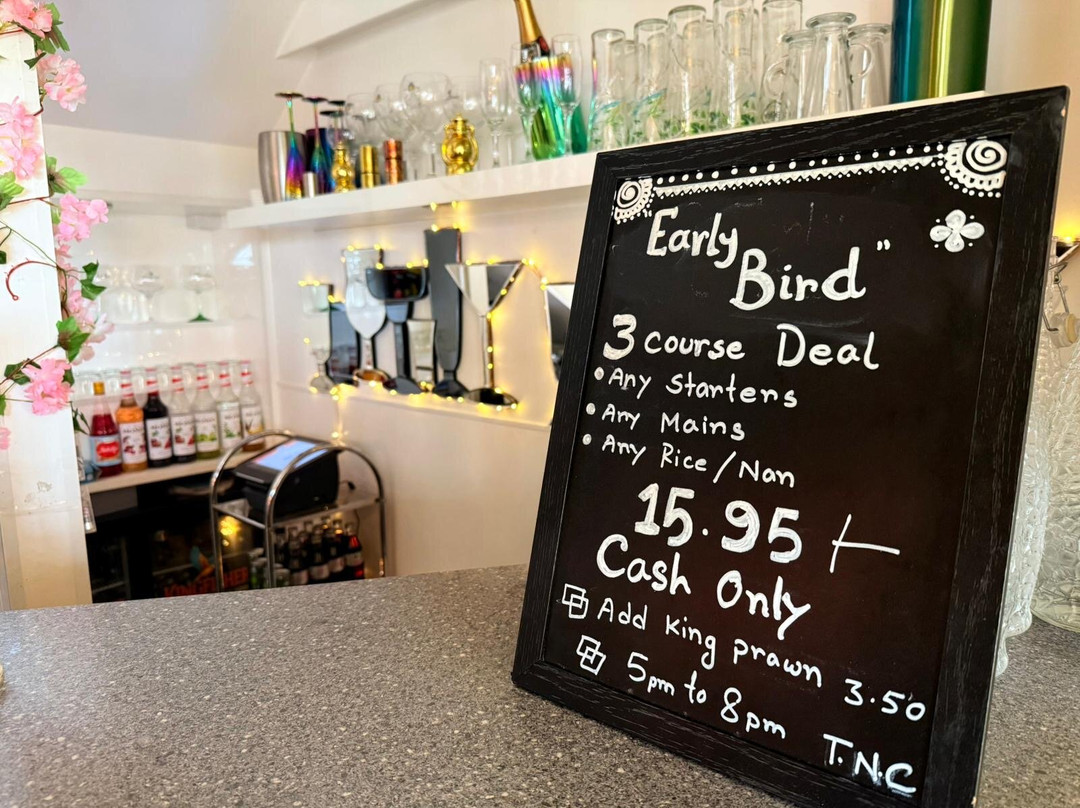 Early
Bird"
3 course Deal
• Any Starters
• Any Mains
• Any Rice/Nan
15.95
Cash Only
Add King prawn 3.50
5pm to 8pm
T.N.C